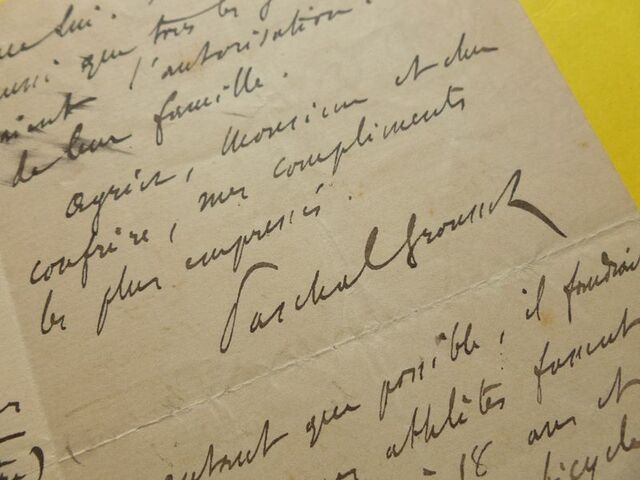 lui.
aussi que tous les
l'autorisation
de leur famille.
Agréez, Monsieur et cher
confrère, mes compliments
les plus empressés.
Paschal Grousset
autant que possible, il faudrait
athlètes fussent
à 18 ans et
bicycle